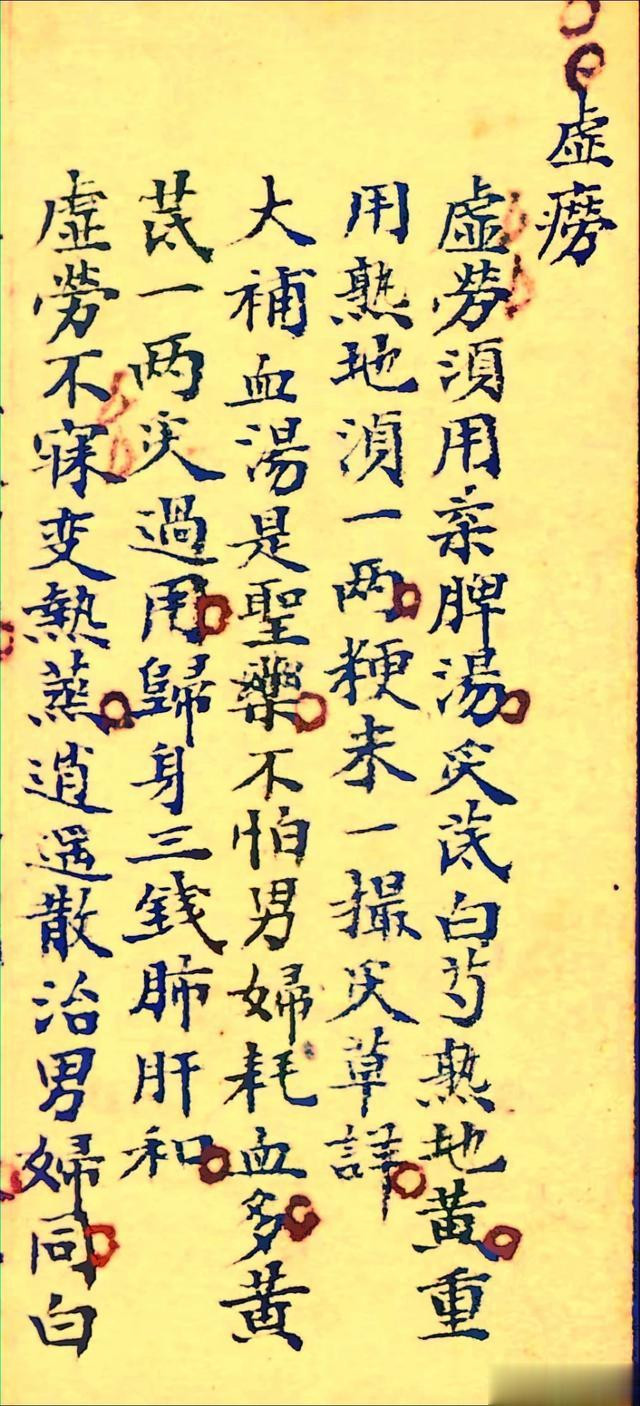 虛癆
虛勞須用亲脾湯炙芪白芍熟地黄重
用熟地湏一两粳米一撮炙草詳
大補血湯是聖藥不怕男婦耗血多黄
芪一两炙過用歸身三錢肺肝和
虛勞不寐变熱蒸逍遥散治男婦同白